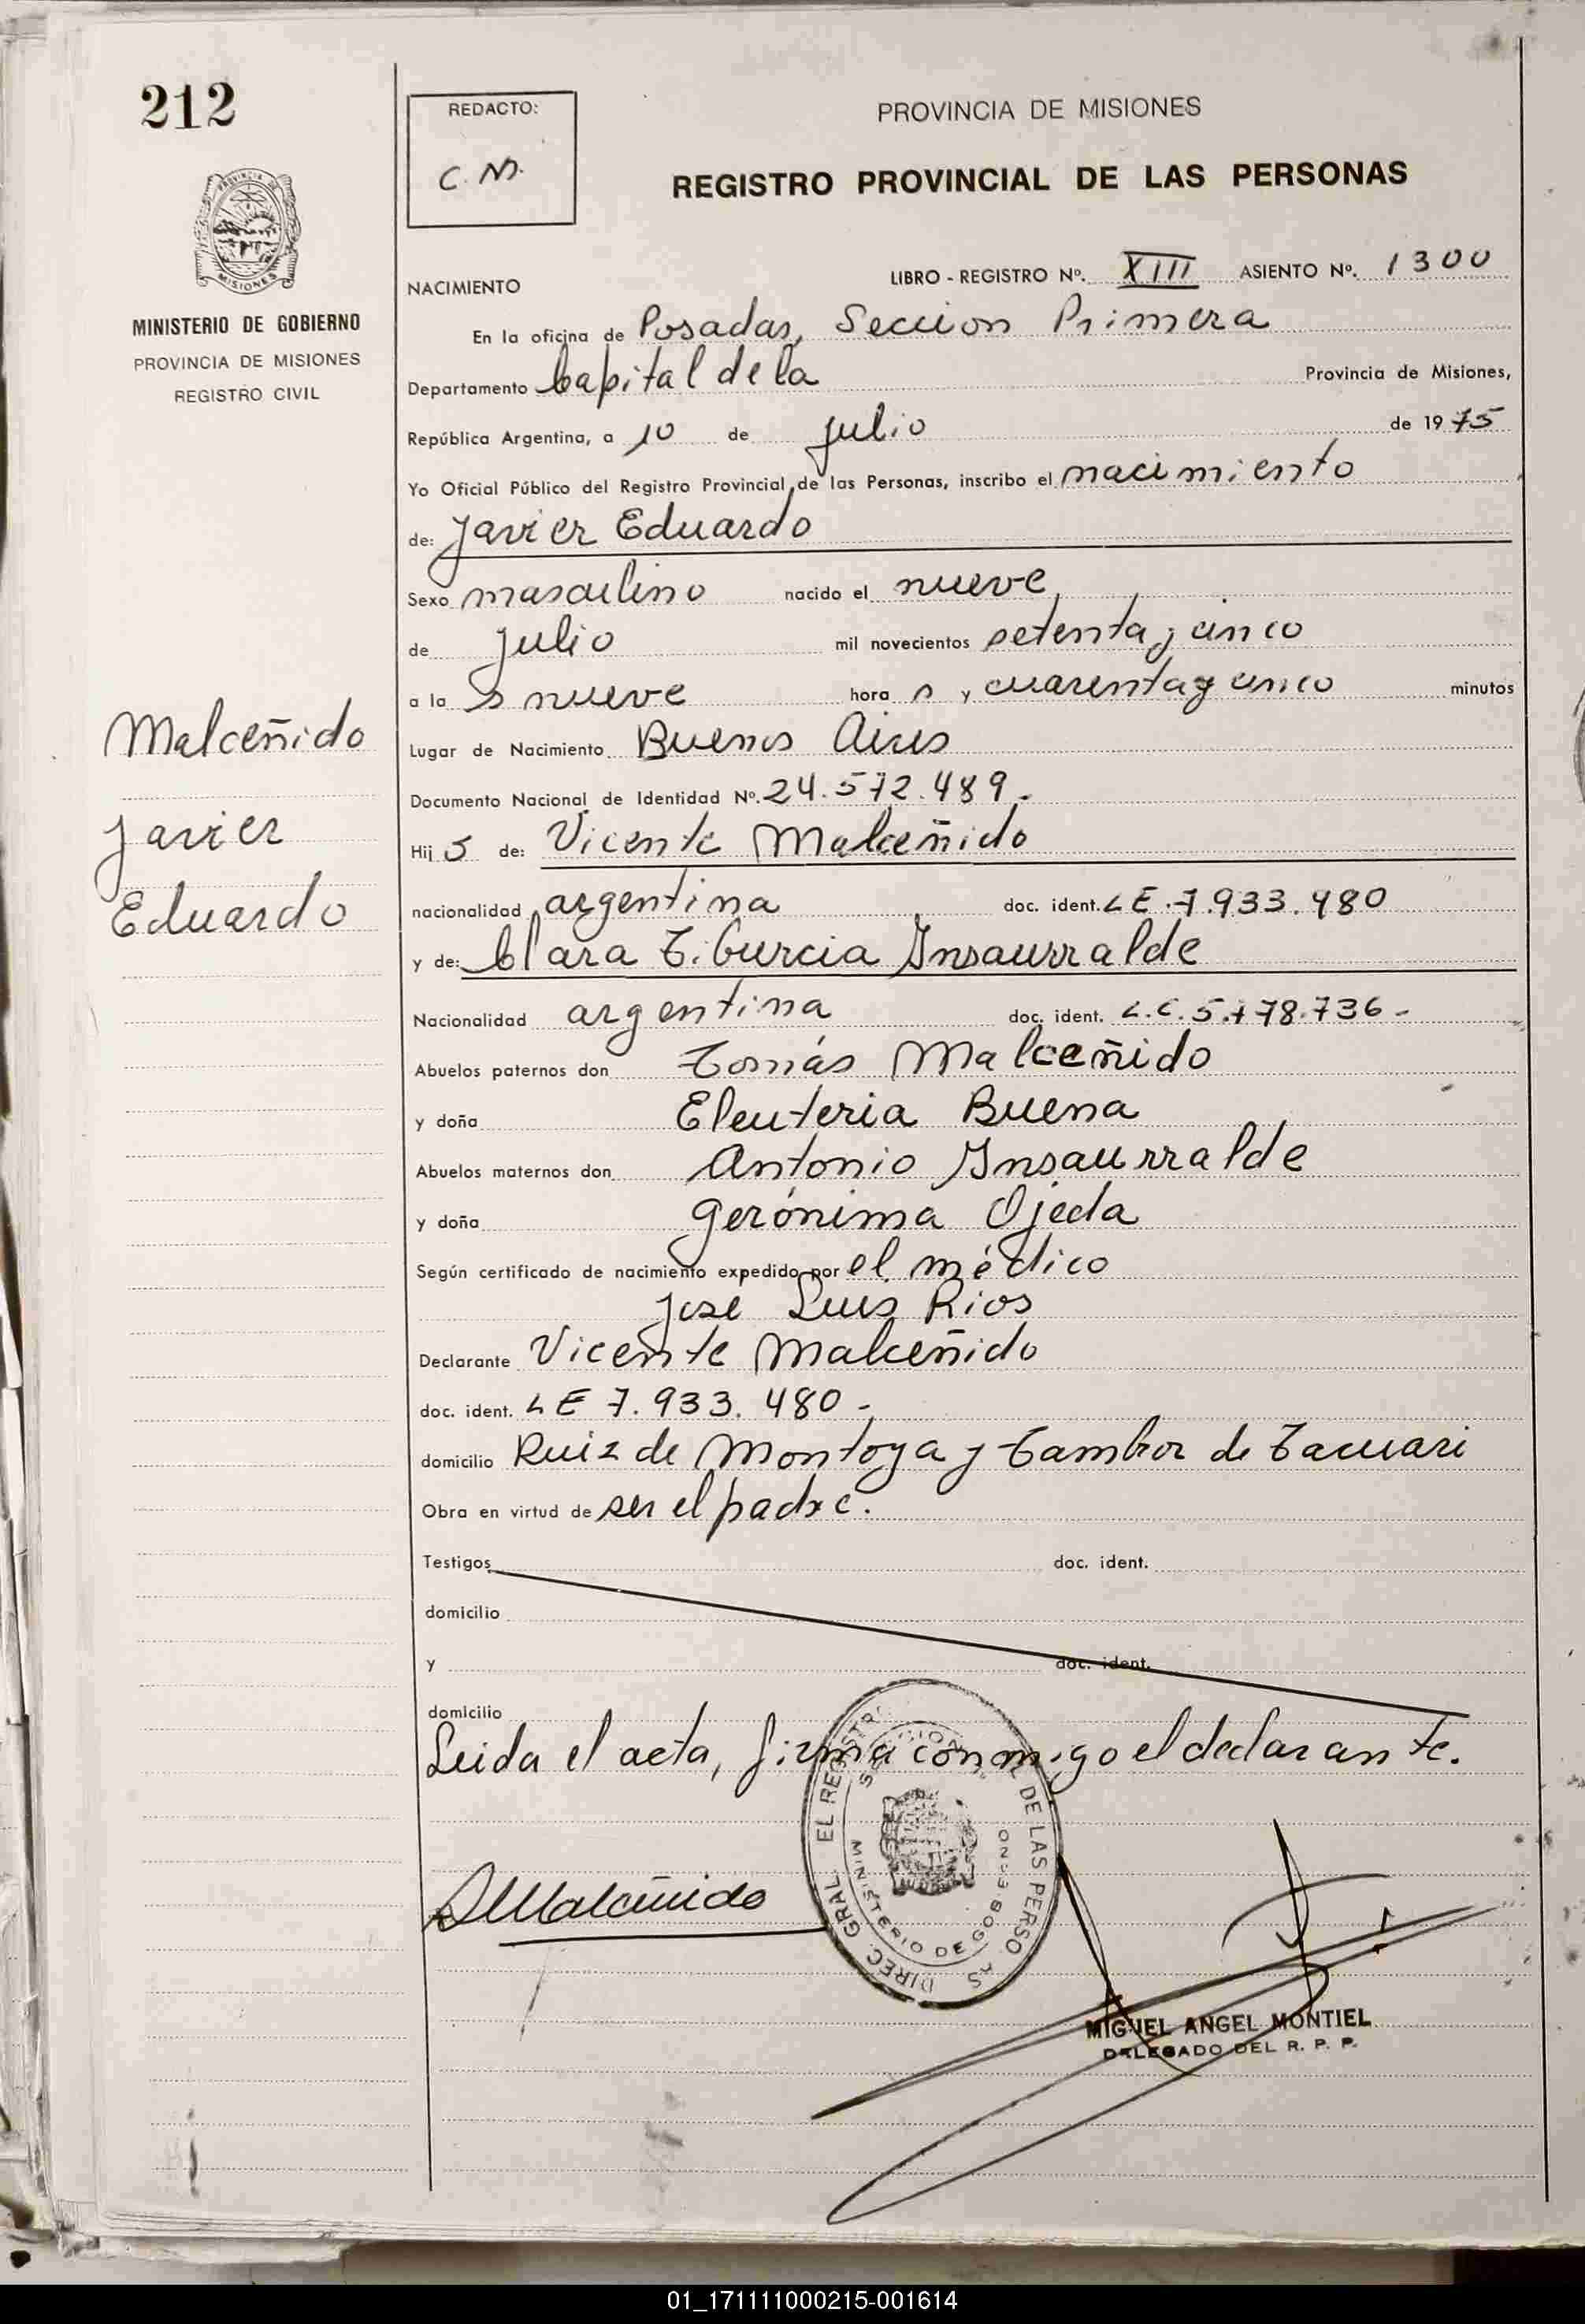 212
REDACTO:
C. M.
PROVINCIA DE MISIONES
REGISTRO PROVINCIAL DE LAS PERSONAS
PROVINCIA DE
MISIONES
MINISTERIO DE GOBIERNO
PROVINCIA DE MISIONES
REGISTRO CIVIL
NACIMIENTO LIBRO - REGISTRO Nº. XIII ASIENTO Nº. 1300
En la oficina de Posadas, Seccion Primera
Departamento Capital de la Provincia de Misiones,
República Argentina, a 10 de julio de 1975
Yo Oficial Público del Registro Provincial de las Personas, inscribo el nacimiento
de: Javier Eduardo
Sexo masculino nacido el nueve
de julio mil novecientos setenta y cinco
a la s nueve hora s y cuarenta y cinco minutos
Malceñido
Javier
Eduardo
Lugar de Nacimiento Buenos Aires
Documento Nacional de Identidad Nº. 24.572.489.
Hij o de: Vicente Malceñido
nacionalidad argentina doc. ident. LE.7.933.480
y de: Clara Tiburcia Insaurralde
Nacionalidad argentina doc. ident. L.C.5.778.736-
Abuelos paternos don Tomás Malceñido
y doña Eleuteria Buena
Abuelos maternos don Antonio Insaurralde
y doña Gerónima Ojeda
Según certificado de nacimiento expedido por el médico
José Luis Rios
Declarante Vicente Malceñido
doc. ident. LE 7.933.480-
domicilio Ruiz de Montoya y Tambor de Tacuari
Obra en virtud de ser el padre.
Testigos doc. ident.
domicilio
y doc. ident.
domicilio
Leida el acta, firma conmigo el declarante.
Malceñido
DIREC. GRAL. EL REGISTR DE LAS PERSO AS
MINISTERIO DE GOBIERNO
MIGUEL ANGEL MONTIEL
DELEGADO DEL R. P. P.
01_171111000215-001614